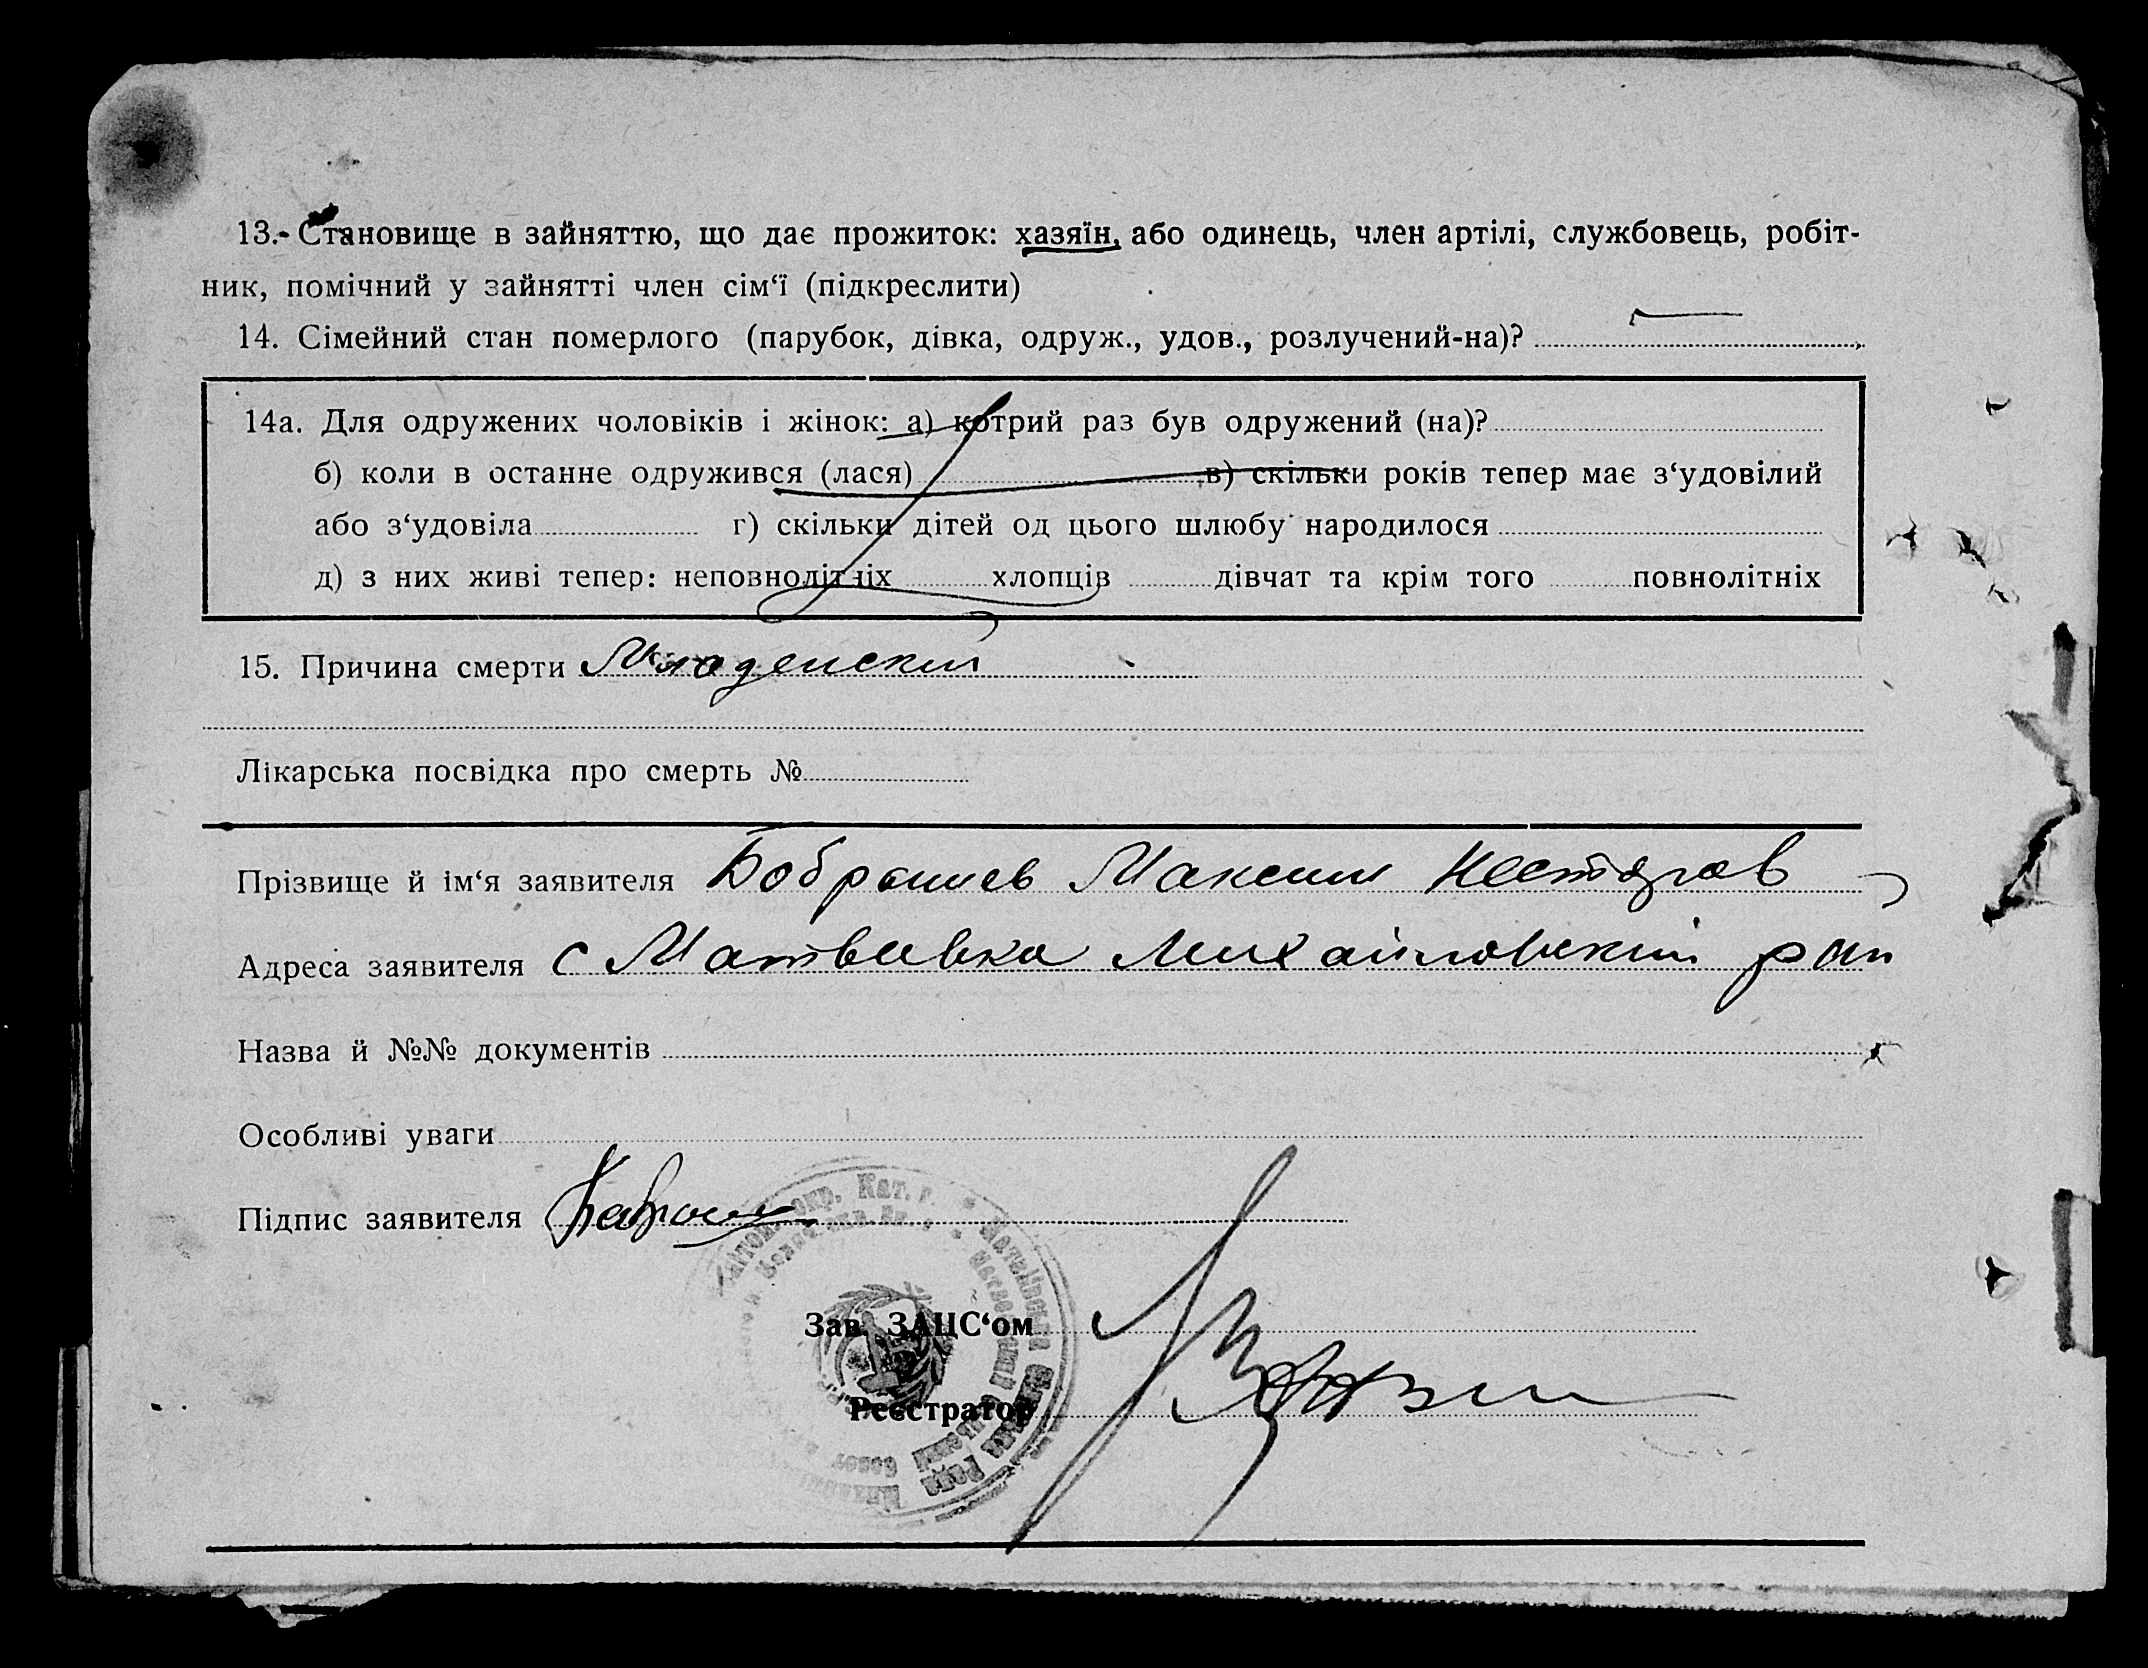 13. Становище в зайняттю, що дає прожиток: хазяїн, або одинець, член артілі, службовець, робіт-
ник, помічний у зайнятті член сім‘ї (підкреслити)
14. Сімейний стан померлого (парубок, дівка, одруж., удов., розлучений-на)?
14а. Для одружених чоловіків і жінок: а) котрий раз був одружений (на)?
б) коли в останне одружився (лася) в) скільки років тепер має з‘удовілий
або з‘удовіла г) скільки дітей од цього шлюбу народилося
д) з них живі тепер: неповнолітніх хлопців дівчат та крім того повнолітніх
15. Причина смерти Младенский
Лікарська посвідка про смерть №
Прізвище й ім‘я заявителя Максим Нестеров
Адреса заявителя с Матвеевка Михайловский рай
Назва й №№ документів
Особливі уваги
Підпис заявителя
Зав. ЗАЦС‘ом
Реєстратор